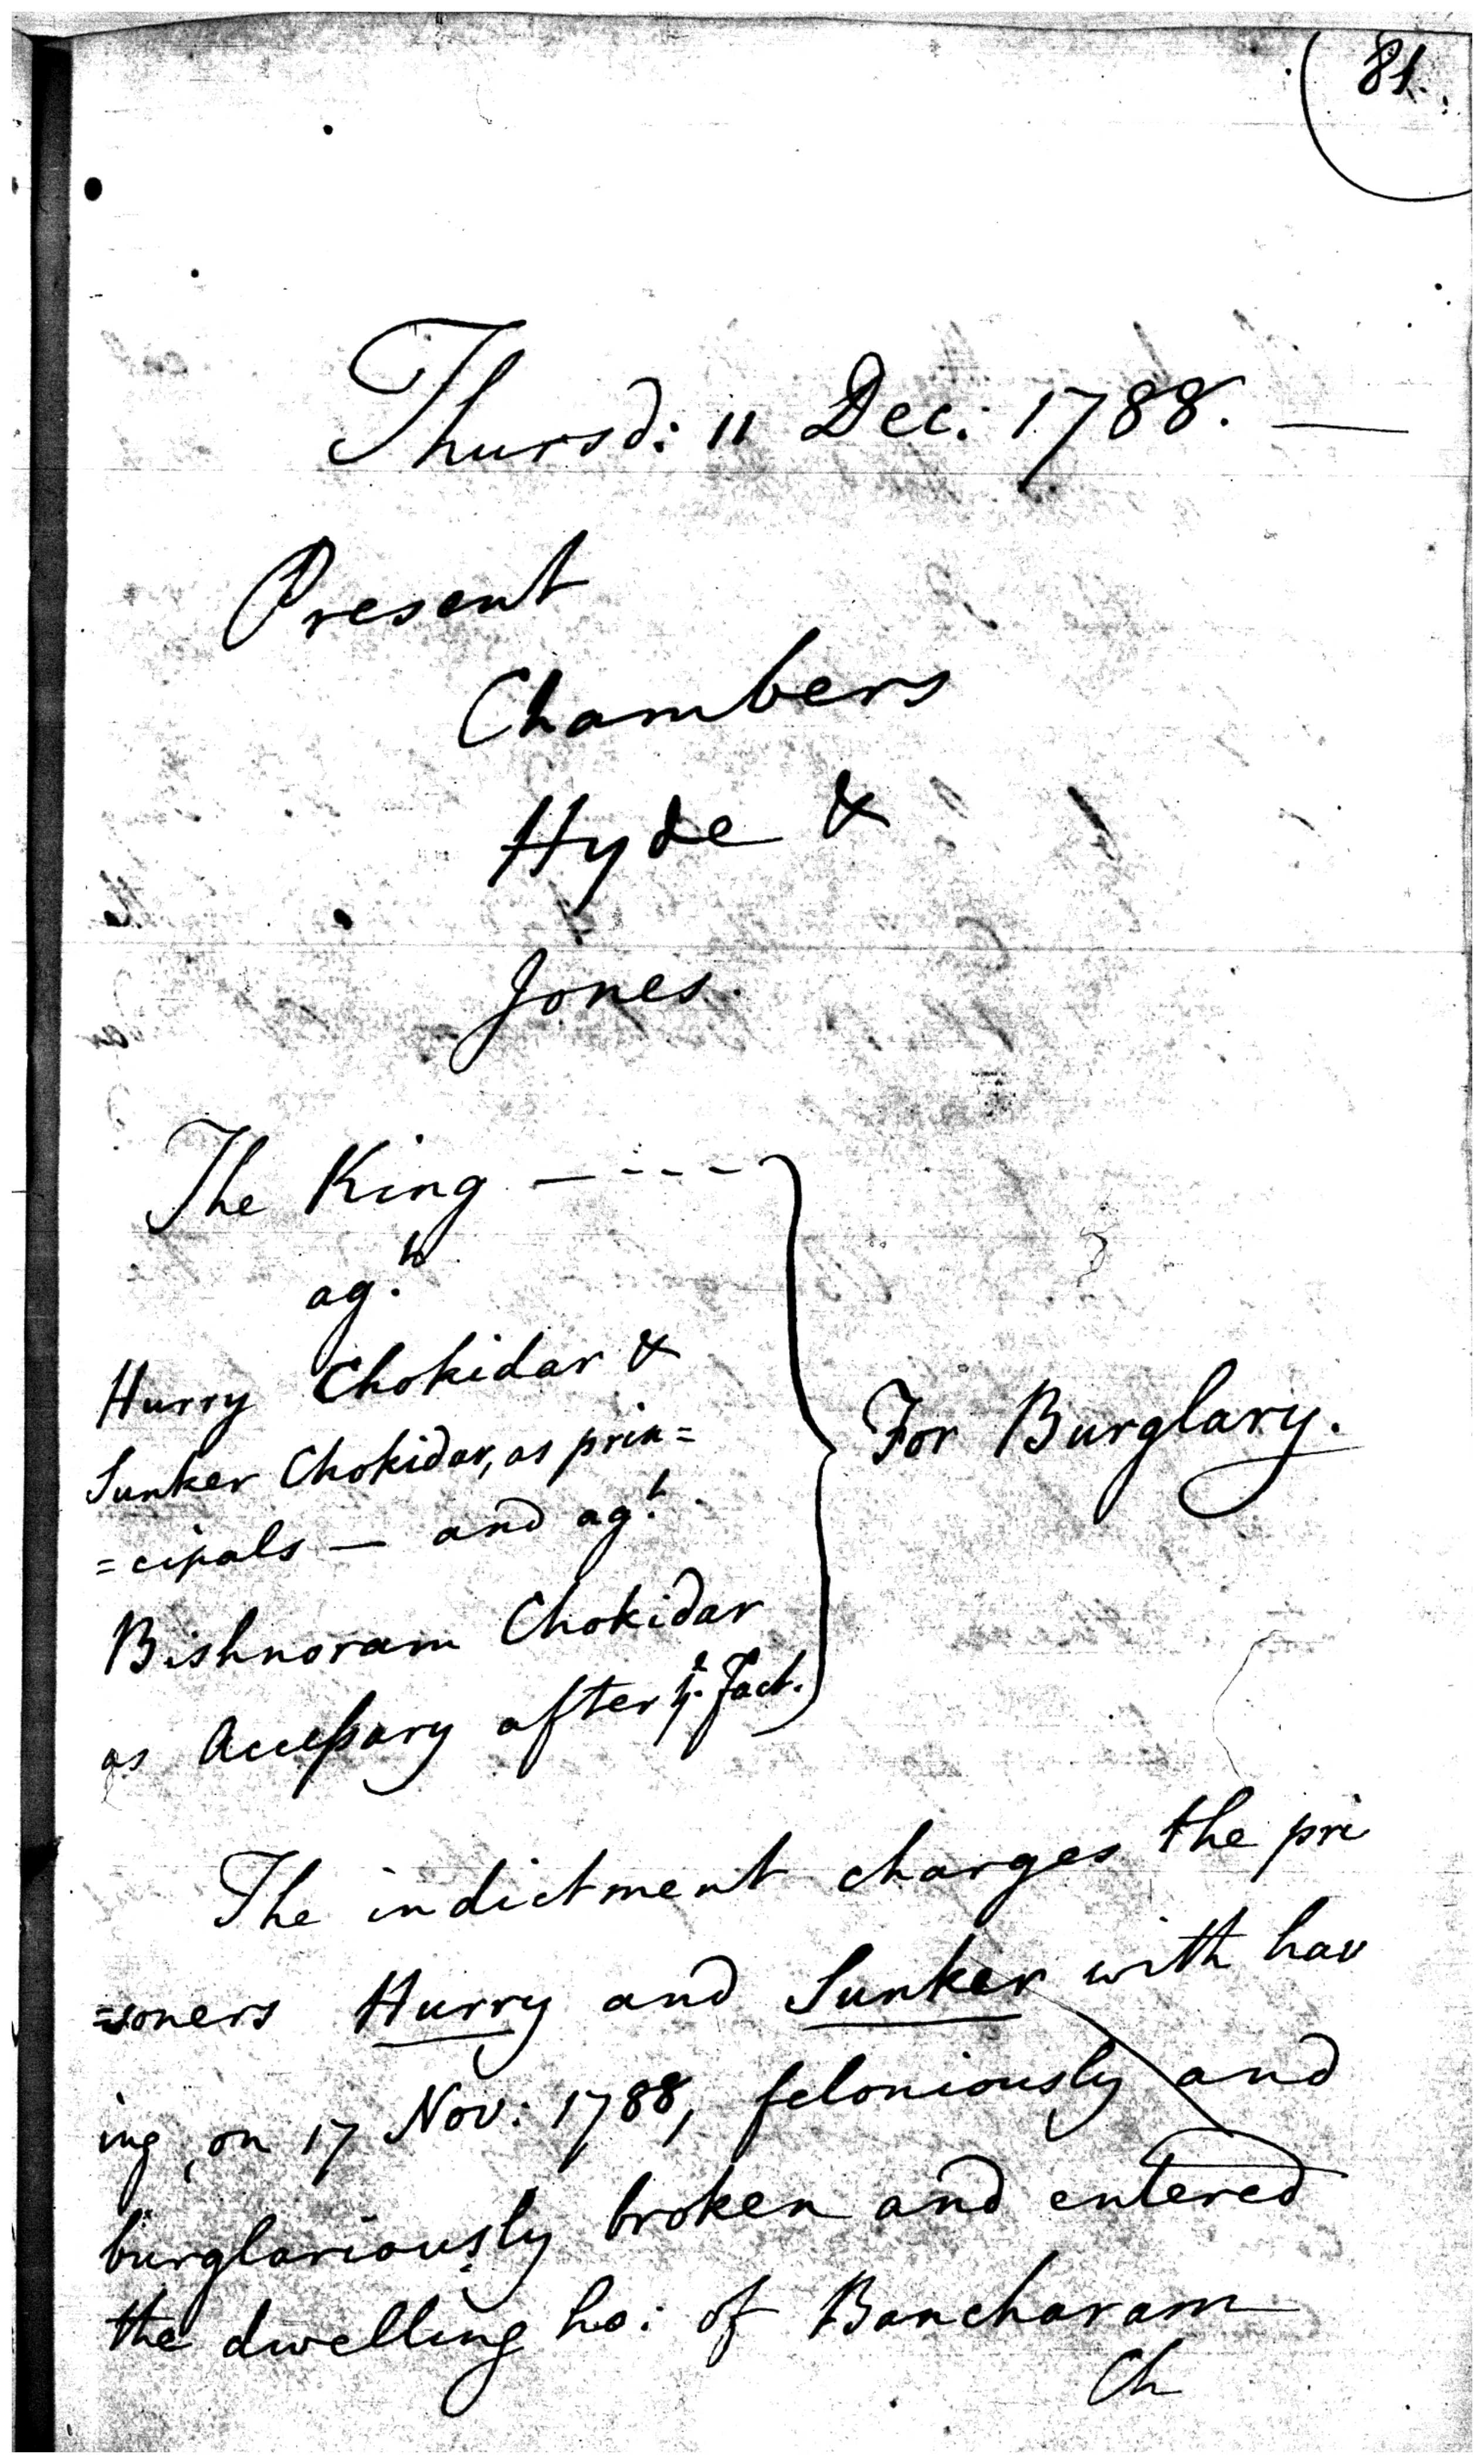 81.
Thursd: 11 Dec: 1788. —
Present
Chambers
Hyde &
Jones.
The King - - - -
ag.t
Hurry Chokidar &
Sunker Chokidar, as prin=
=cipals — and ag.t
Bishnoram Chokidar
as Accessary after y.e Fact.
For Burglary.
The indictment charges the pri
=soners Hurry and Sunker with hav
ing, on 17 Nov: 1788, feloniously and
burglariously broken and entered
the dwelling ho: of Bancharam
Ch